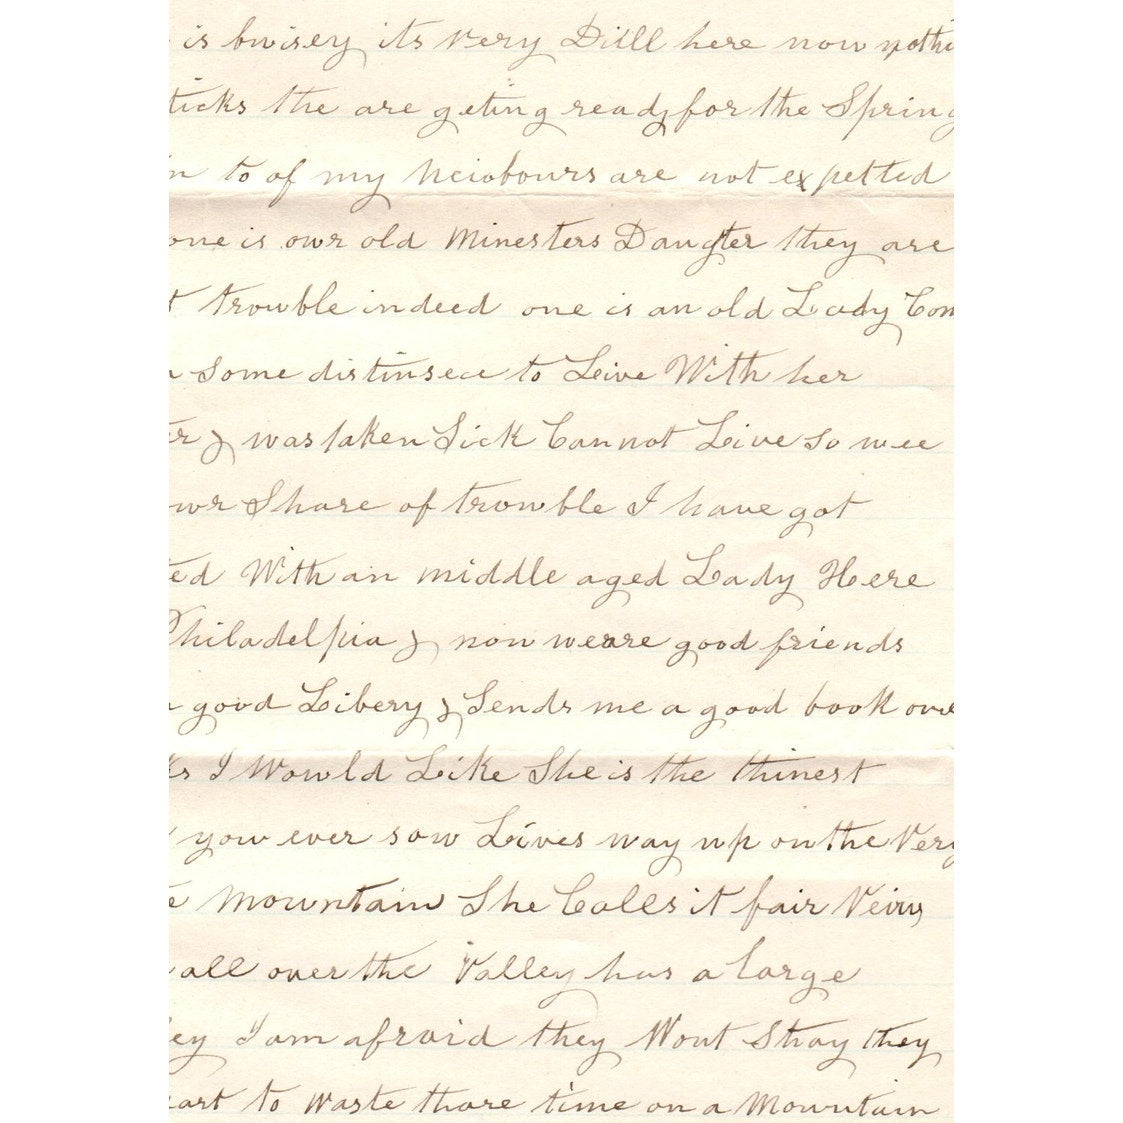 is bwisey its very Dull here now nothi
ticks the are geting ready for the Spring
n to of my Neiobours are not expetted
one is owr old Minesters Daugter they are
t trowble indeed one is an old Lady Com
n some distinsece to Leive With her
er & was taken Sick Cannot Live So wee
owr Share of trowble I have got
ted With an middle aged Lady Here
Philadelpia & now weare good friends
a good Libery & Sends me a good book ove
ks I Wowld Like She is the thinest
you ever sow Lives way up on the Very
e Mowntain She Calls it fair Veiw
all over the Valley has a large
ey I am afraid they Wont Stay they
eart to Waste thare time on a Mowntain